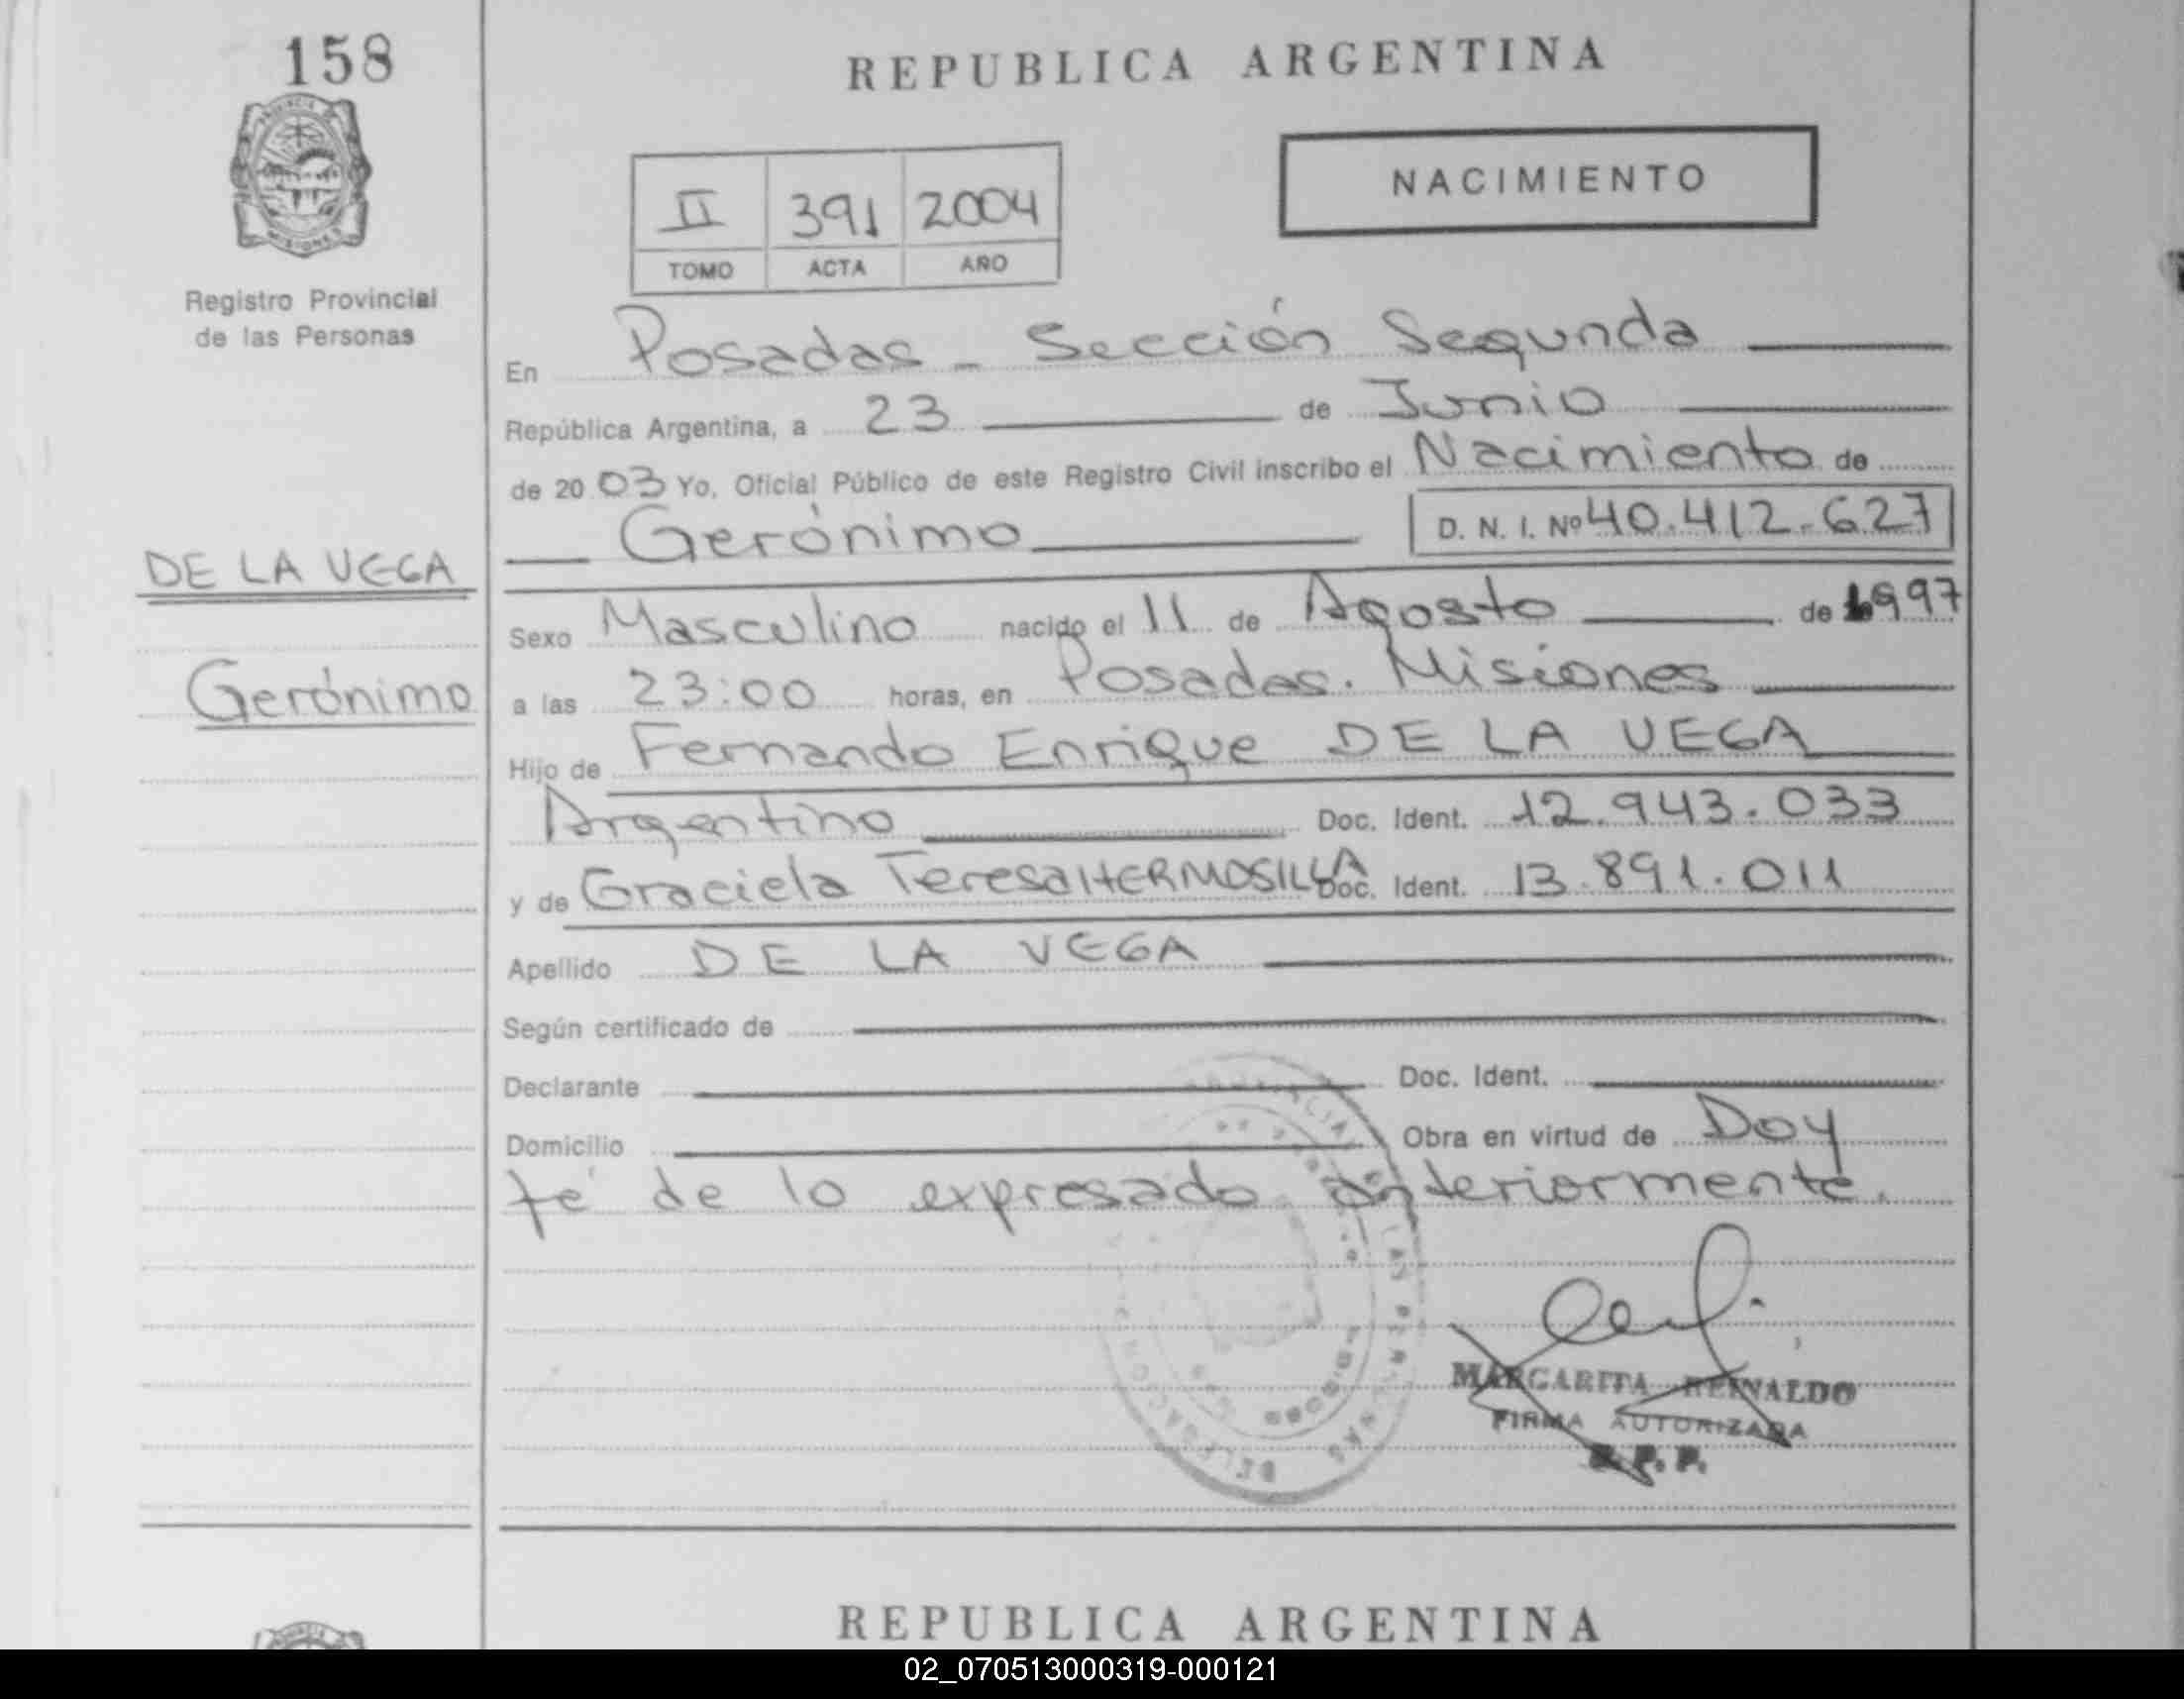 158
REPUBLICA ARGENTINA
NACIMIENTO
II 391 2004
TOMO ACTA AÑO
Registro Provincial
de las Personas
En Posadas - Sección Segunda
República Argentina, a 23 de Junio
de 20 03 Yo, Oficial Público de este Registro Civil inscribo el Nacimiento de
Gerónimo D. N. I. Nº 40.412.627
DE LA VEGA
Gerónimo
Sexo Masculino nacido el 11 de Agosto de 1997
a las 23:00 horas, en Posadas. Misiones
Hijo de Fernando Enrique DE LA VEGA
Argentino Doc. Ident. 12.943.033
y de Graciela Teresa HERMOSILLA Doc. Ident. 13.891.011
Apellido DE LA VEGA
Según certificado de
Declarante Doc. Ident.
Domicilio Obra en virtud de Doy
fé de lo expresado anteriormente.
MARGARITA REINALDO
FIRMA AUTORIZADA
R. P. P.
REPUBLICA ARGENTINA
02_070513000319-000121